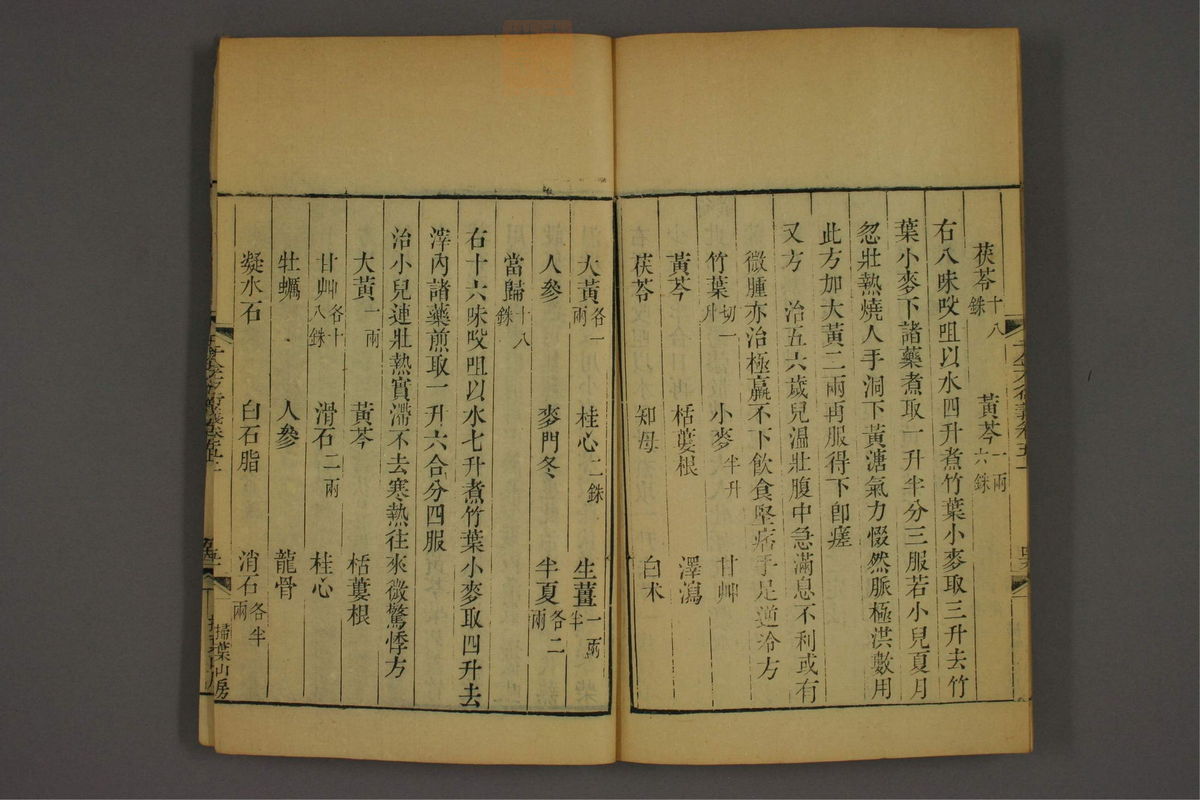 茯苓十八銖　黃芩一兩六銖
右八味㕮咀以水四升煮竹葉小麥取三升去竹
葉小麥下諸藥煮取一升半分三服若小兒夏月
忽壯熱燒人手洞下黃溏氣力惙然脈極洪數用
此方加大黃二兩再服得下卽瘥
又方　治五六歲兒溫壯腹中急滿息不利或有
微腫亦治極羸不下飲食堅痞手足逆冷方
竹葉切一升　小麥半升　甘艸
黃芩　栝蔞根　澤瀉
茯苓　知母　白朮
大黃各一兩　桂心二銖　生薑一兩半
人參　麥門冬　半夏各二兩
當歸十八銖
右十六味㕮咀以水七升煮竹葉小麥取四升去
滓內諸藥煎取一升六合分四服
治小兒連壯熱實滯不去寒熱往來微驚悸方
大黃一兩　黃芩　栝蔞根
甘艸各十八銖　滑石二兩　桂心
牡蠣　人參　龍骨
凝水石　白石脂　消石各半兩
掃葉山房